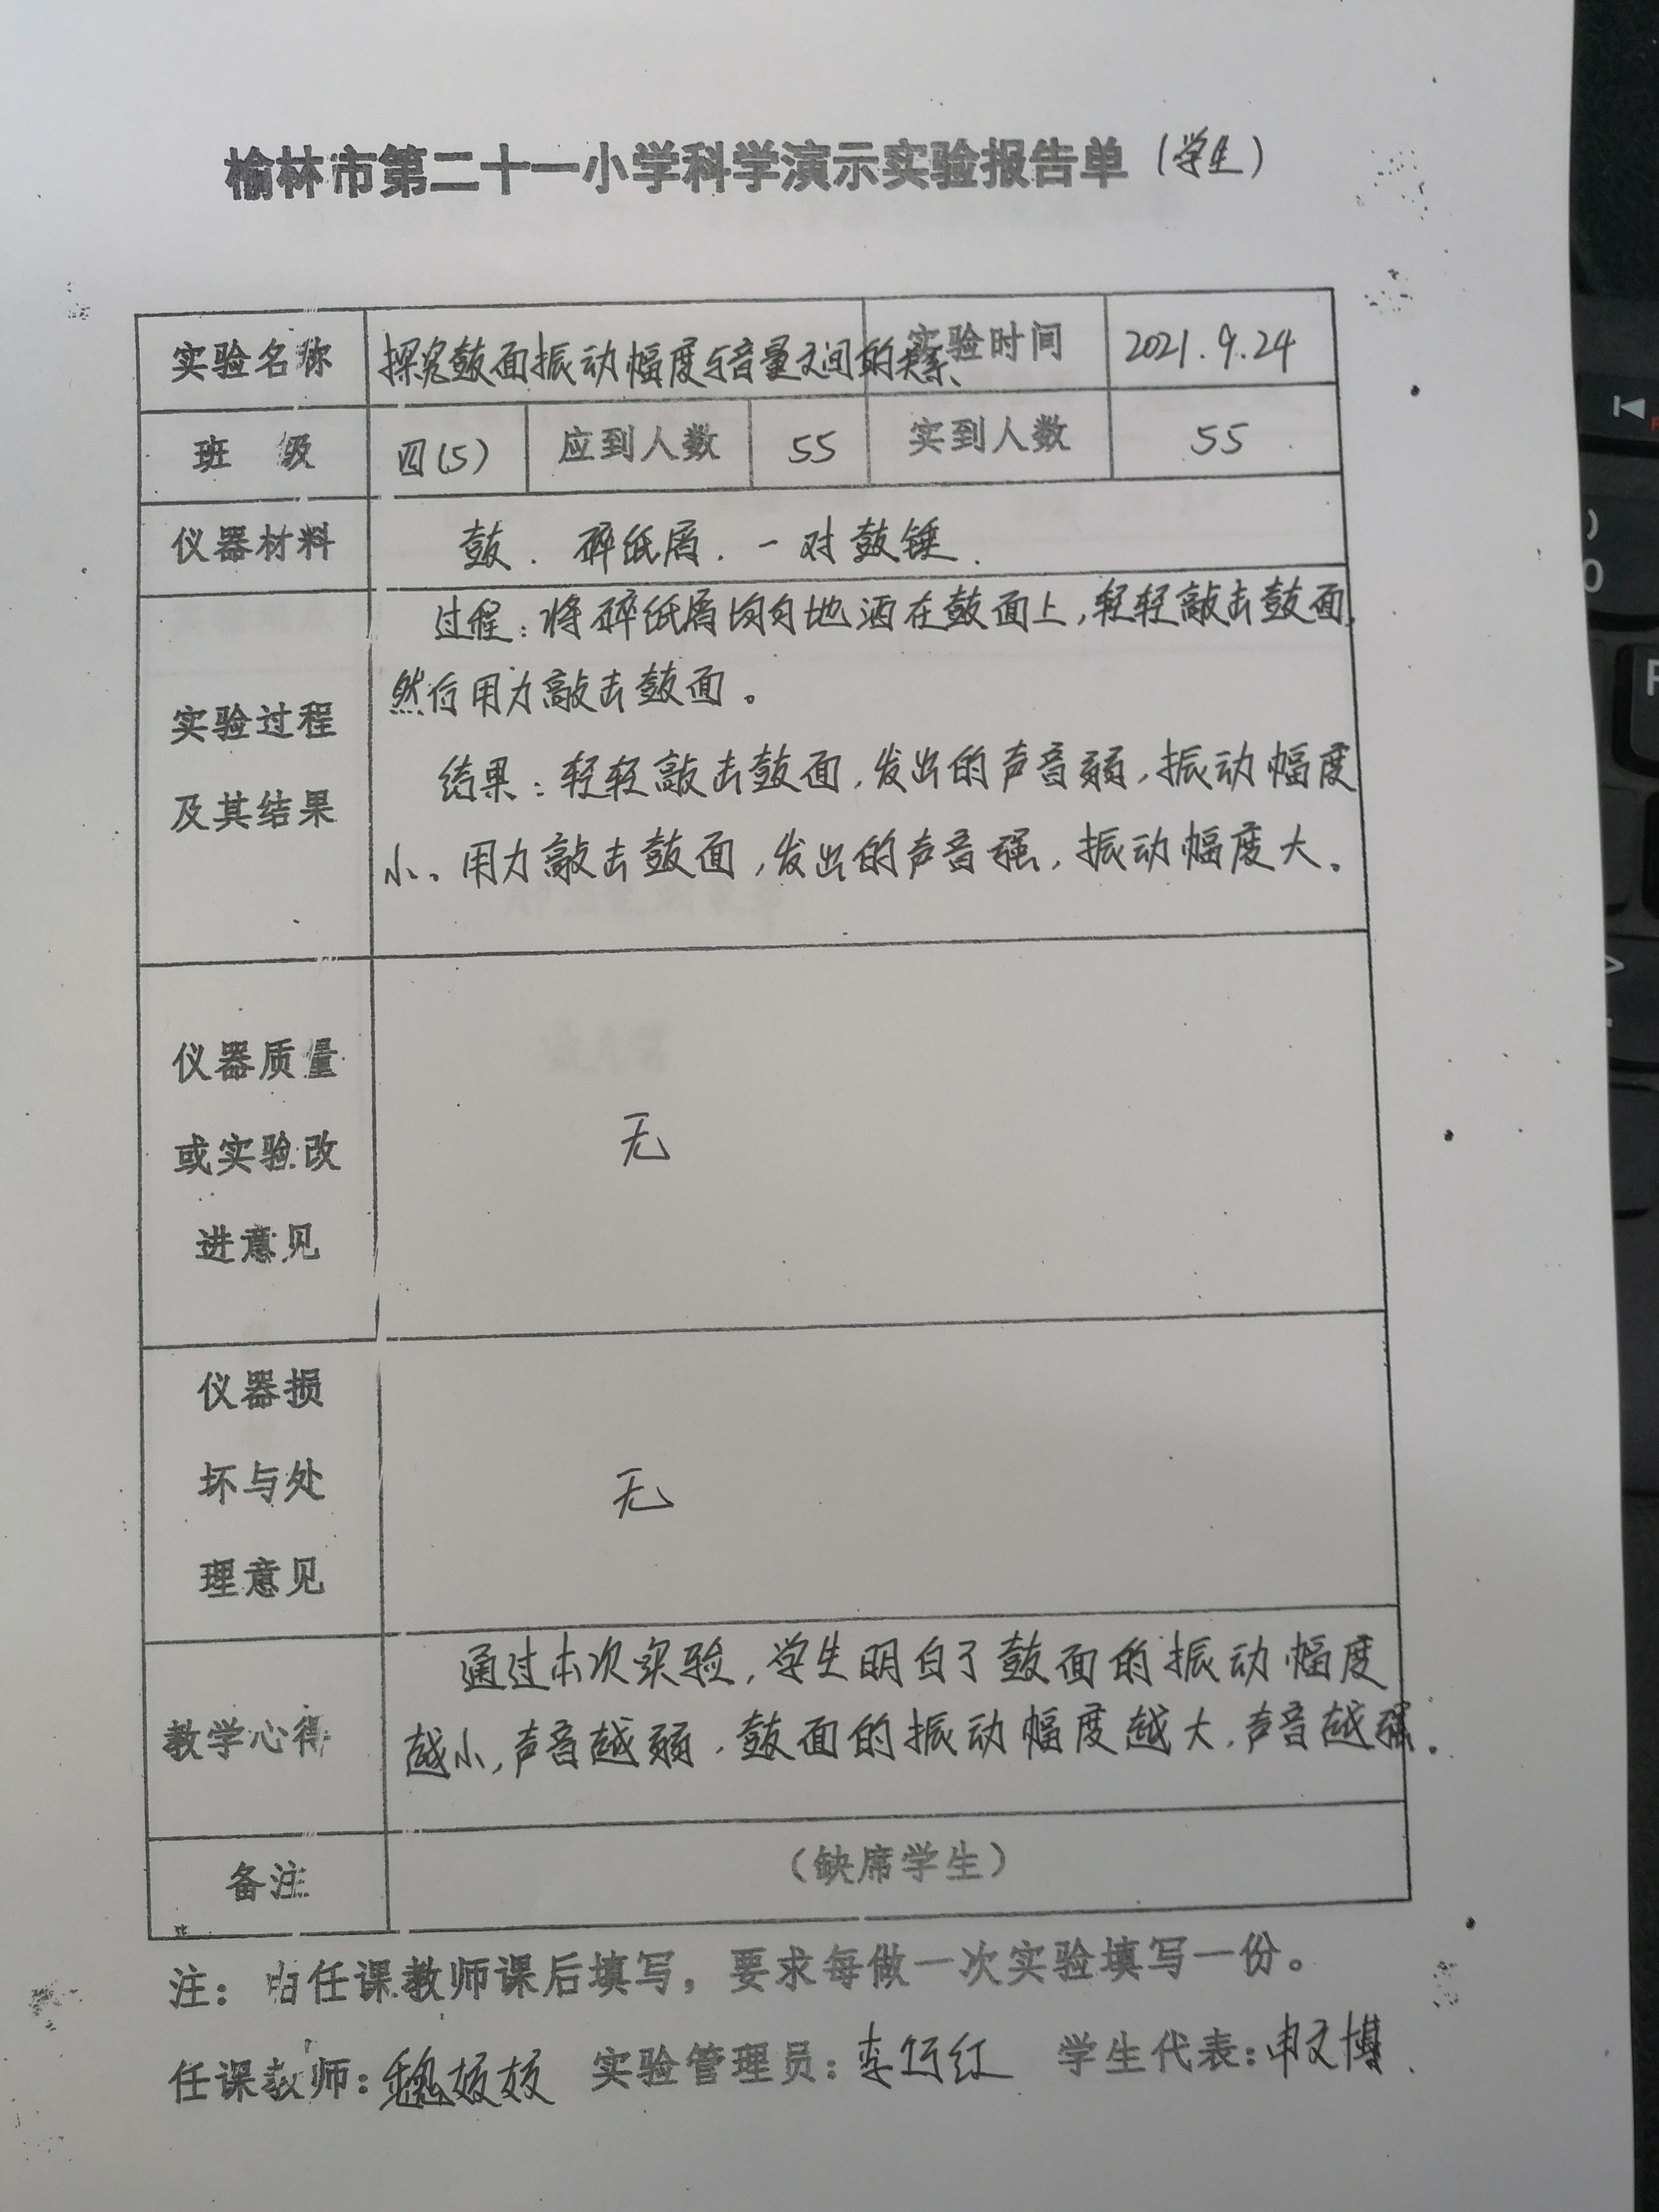 榆林市第二十一小学科学演示实验报告单（学生）
实验名称 探究鼓面振动幅度与音量之间的关系 实验时间 2021.9.24
班 级 四(5) 应到人数 55 实到人数 55
仪器材料 鼓．碎纸屑．一对鼓锤．
过程：将碎纸屑均匀地洒在鼓面上，轻轻敲击鼓面，
然后用力敲击鼓面。
实验过程
及其结果
结果：轻轻敲击鼓面，发出的声音弱，振动幅度
小。用力敲击鼓面，发出的声音强，振动幅度大。
仪器质量
或实验改
进意见
无
仪器损
坏与处
理意见
无
教学心得
通过本次实验，学生明白了鼓面的振动幅度
越小，声音越弱．鼓面的振动幅度越大．声音越强．
备注 （缺席学生）
注：由任课教师课后填写，要求每做一次实验填写一份。
任课教师：魏 实验管理员：李 红 学生代表：申文博